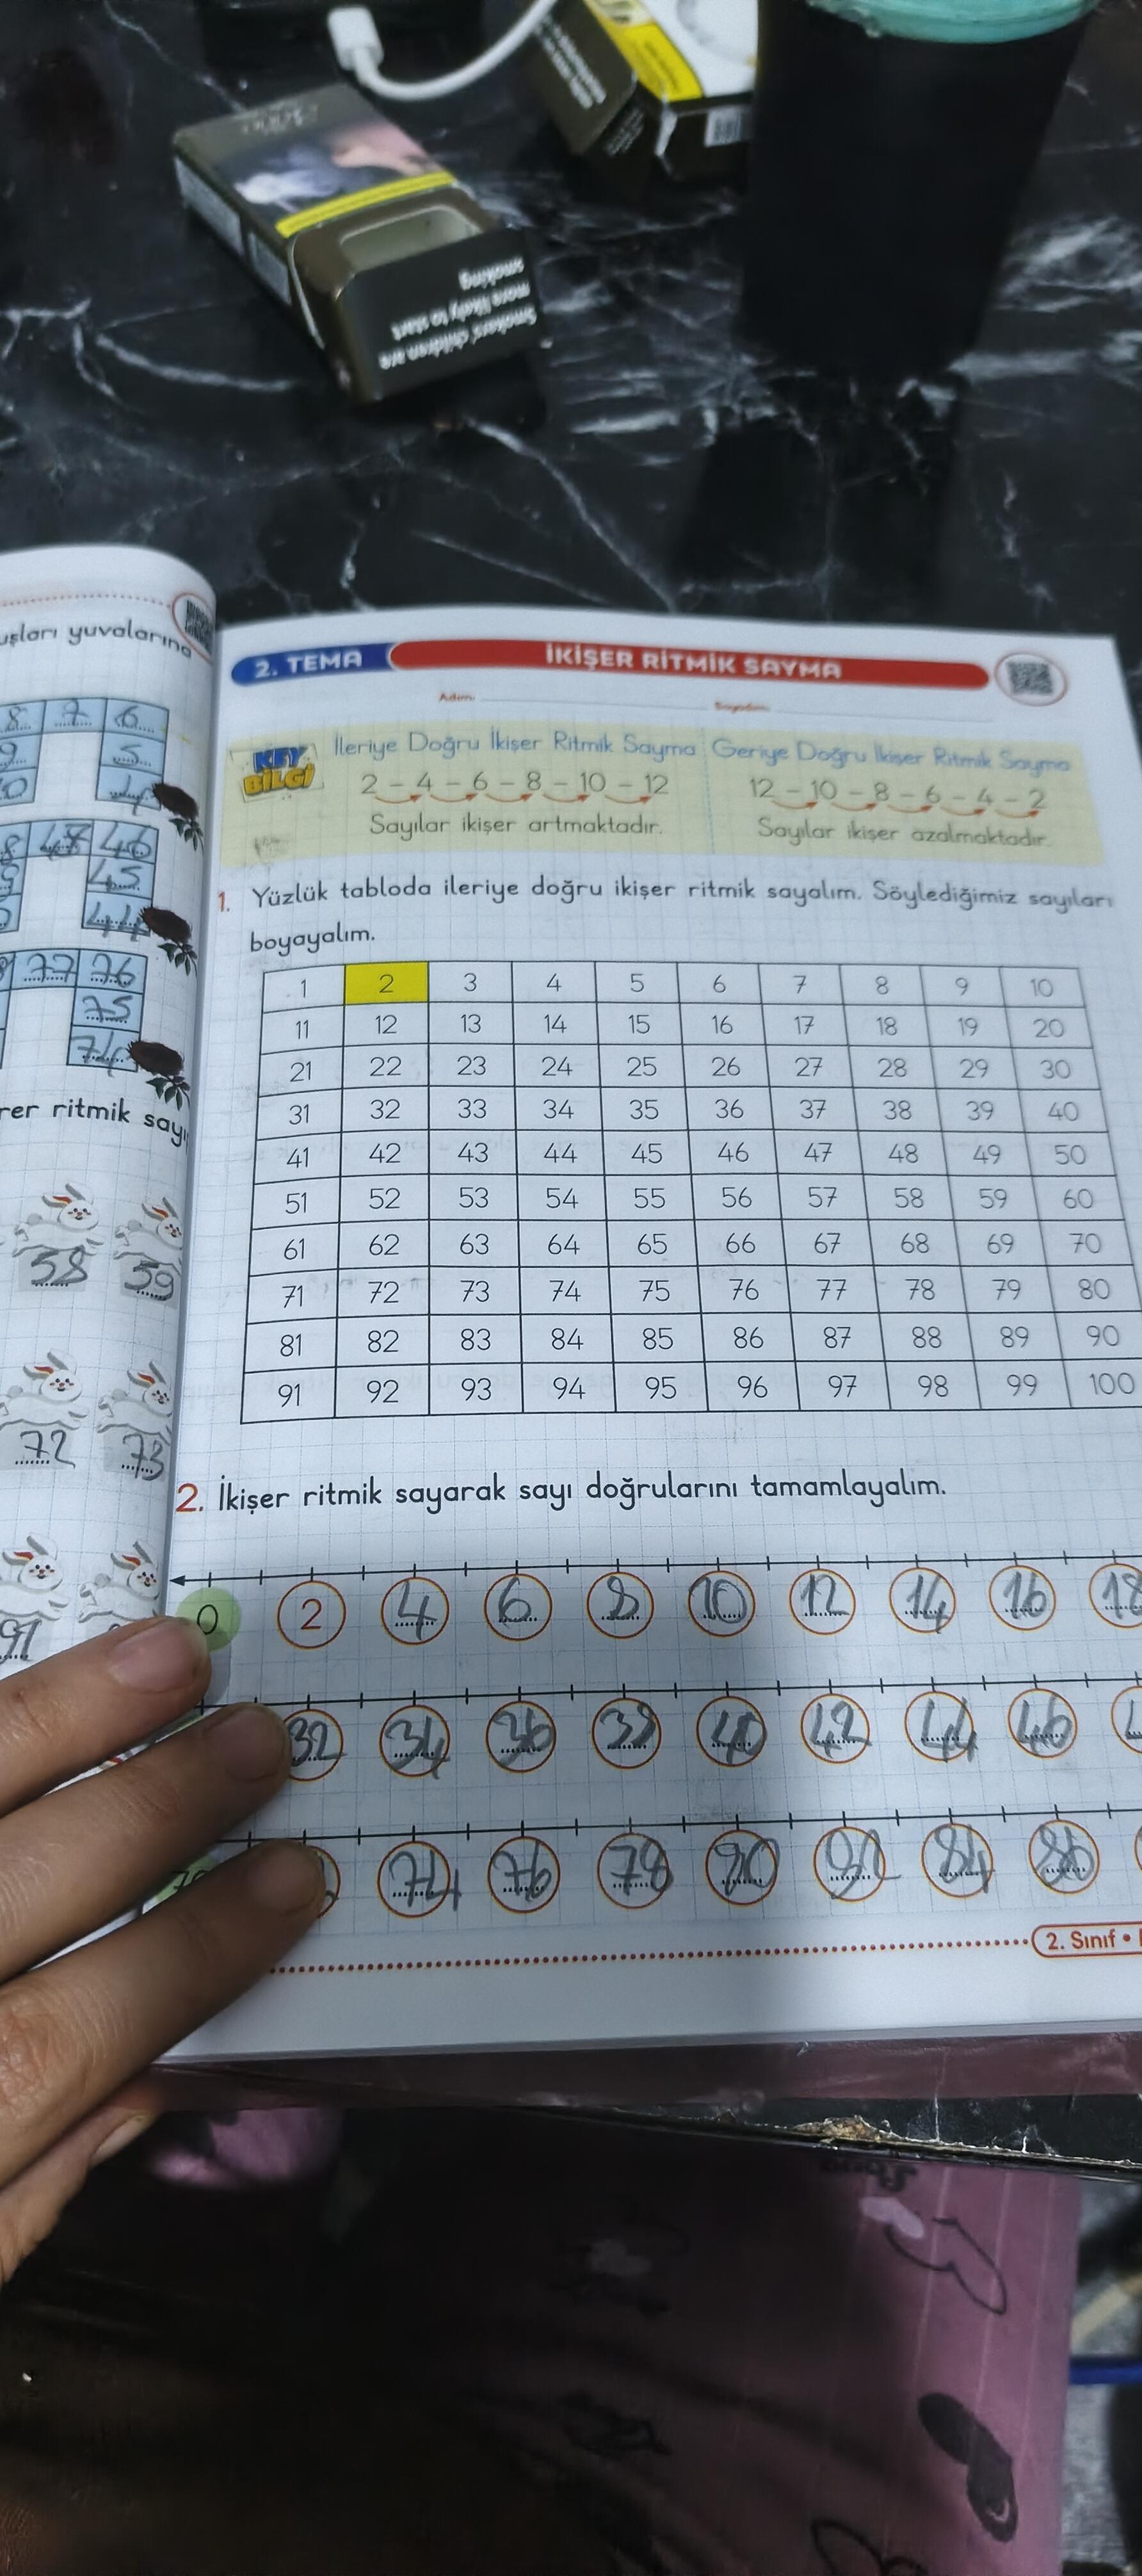 Smokers' children are
more likely to start
smoking
uşları yuvalarına
8 7 6
5
8 47 46
45
44
77 76
75
74
rer ritmik sayı
58 59
72 73
91
2. TEMA
İKİŞER RİTMİK SAYMA
Adım:
Soyadım:
KEY
BİLGİ
İleriye Doğru İkişer Ritmik Sayma
2 – 4 – 6 – 8 – 10 – 12
Sayılar ikişer artmaktadır.
Geriye Doğru İkişer Ritmik Sayma
12 – 10 – 8 – 6 – 4 – 2
Sayılar ikişer azalmaktadır.
1. Yüzlük tabloda ileriye doğru ikişer ritmik sayalım. Söylediğimiz sayıları
boyayalım.
1 2 3 4 5 6 7 8 9 10
11 12 13 14 15 16 17 18 19 20
21 22 23 24 25 26 27 28 29 30
31 32 33 34 35 36 37 38 39 40
41 42 43 44 45 46 47 48 49 50
51 52 53 54 55 56 57 58 59 60
61 62 63 64 65 66 67 68 69 70
71 72 73 74 75 76 77 78 79 80
81 82 83 84 85 86 87 88 89 90
91 92 93 94 95 96 97 98 99 100
2. İkişer ritmik sayarak sayı doğrularını tamamlayalım.
0 2 4 6 8 10 12 14 16 18
32 34 36 38 40 42 44 46
74 76 78 80 82 84 86
2. Sınıf •